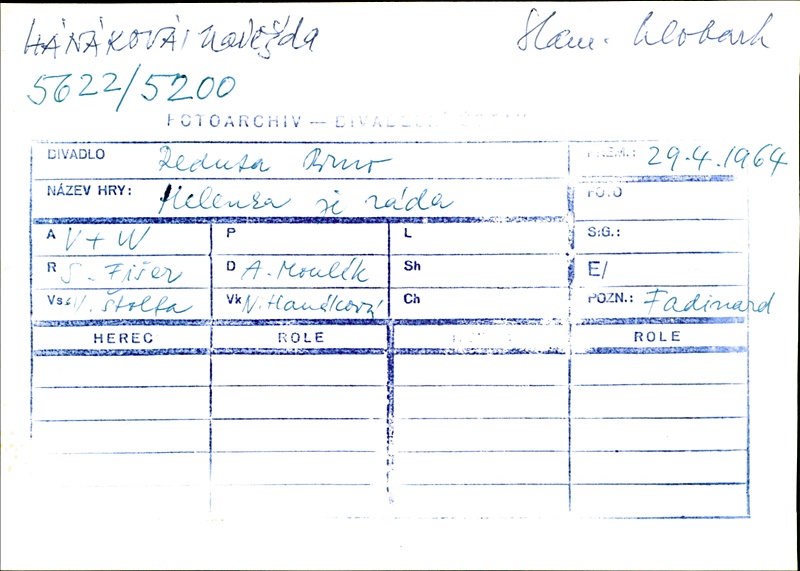 HANÁKOVÁ, Naděžda
Slam. klobouk
5622/5200
FOTOARCHIV — DIVADELNÍ ÚSTAV
DIVADLO Reduta Brno
PREM.: 29.4.1964
NÁZEV HRY: Helenka je ráda
FOTO
A V + W P L SIG.:
R S. Fišer D A. Moulík Sh E/
Vs V. Štolfa Vk N. Hanáková Ch POZN.: Fadinard
HEREC ROLE ROLE